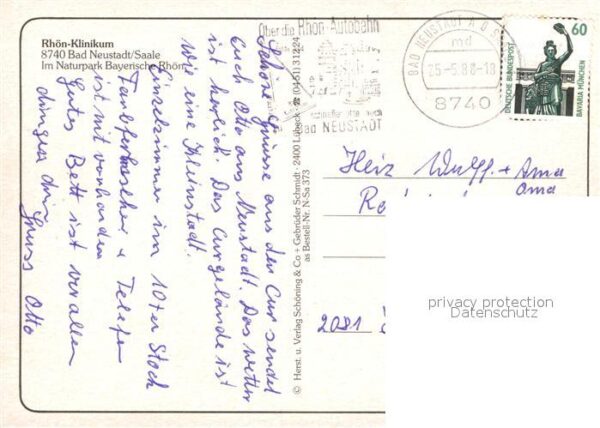 Rhön-Klinikum
8740 Bad Neustadt/Saale
Im Naturpark Bayerische Rhön
Schöne Grüsse aus der Cur sendet
euch Otto aus Neustadt. Das Wetter
ist herlich. Das Curgelände ist
wie eine Kleinstadt.
Einzelzimmer im 10ter Stock
Farbfernseher + Telefon
ist mit vorhanden
Gutes Bett ist vor allen
dingen drin
Gruss Otto
© Herst. u. Verlag Schöning & Co + Gebrüder Schmidt · 2400 Lübeck · ☎ (0451) 31224
as Bestell-Nr. N-Sa 373
Über die Rhön-Autobahn
schneller nach
Bad NEUSTADT
BAD NEUSTADT A D S
md
25-5.88-18
8740
60
DEUTSCHE BUNDESPOST
BAVARIA MÜNCHEN
Heiz Wulff +
Oma
2081
privacy protection
Datenschutz